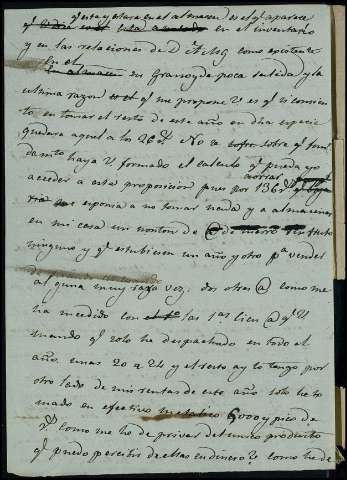 q.e esta y otras en el almacen es el q.e aparece
q.e en el inventario
y en las relaciones de D. como existente
en el almacen en grano y de poca salida y la
ultima razon es el q.e me propone V es q.e si consien
to en tomar el resto de este año en dha especie
quedara aquel a los 26 No se sobre q.e fun
dam.to haya V formado el calculo q.e pueda yo
acceder a esta proposicion pues por 136
esponia a no tomar nada y a almacenar
en mi casa un monton de @ de
ninguno y q.e estubiesen un año y otro p.a vender
alguna muy rara vez: dos o tres @ como me
ha sucedido con las 1.as cien @ q.e V
mando q.e solo he despachado en todo el
año unas 20 a 24 y el resto ay lo tengo por
otro lado de mis rentas de este año solo he to
mado en efectivo metalico 6000 y pico de
r.s como me he de privar del unico producto
q.e puedo percibir de ellas en dinero? como he de